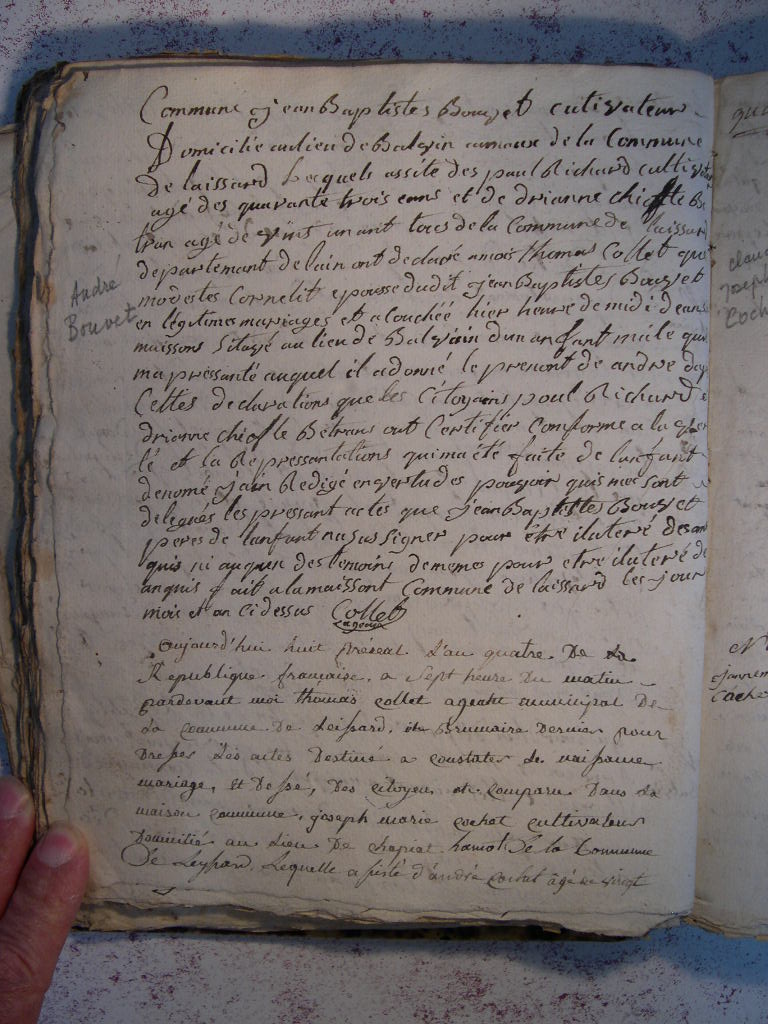 Commune jean Baptistes Bouvet cultivateur
Domicilié au lieu de Balvoin aumaux de la Commune
de laissard Lequels assité des paul Richard cultivat
agé des quarante trois ans et de drianne chiofle Be
tran agé de vint un ant tous de la Commune de laissar
departemant de lain ont declaré a mois thomas Collet que
modestes Cornélit epousse dudit jean Baptistes Bouvet
en légitimes mariages et acouchéé hier heure de midi dean
maissons Sitayé au lieu de Balvoin dun anfant male qui
ma pressanté auquel il a donné le prenont de andre da
Celtes declarations que les Citoyains paul Richard e
drianne chiofle Bétrans ont Certifiér Comforme a la
lé et la Répressantations qui ma été faite de lanfant
denomé jain Redigé en vertu des pouvoir quis moi sont
delegués les pressant actes que jean Baptistes Bouvet
peres de lanfant na sus signer pour être ilateré
quis ni auqun des temoins de memes pour etre ilateré de
anquis fait a la maissont Commune de laissard les jour
mois et an ci dessus Collet
agent
aujourd'hui huit préreal l'an quatre De La
République française, a Sept heure Du matin
pardevant moi thomas collet agent municipal De
La Commune De Leissard, Brumaire Dernier pour
Dresser Les actes Destiné a constater de naissance
mariage, Et De Sé, Des Citoyen, et comparu Dans La
maison commune, joseph marie cochet cultivateur
Domicilié au Lieu De chapiat hamot De la Commune
De Leyssard, Lequelle a sisté d'andré cochet âgé de vingt
André
Bouvet
claud
joseph
Coch
qua
N
Coche